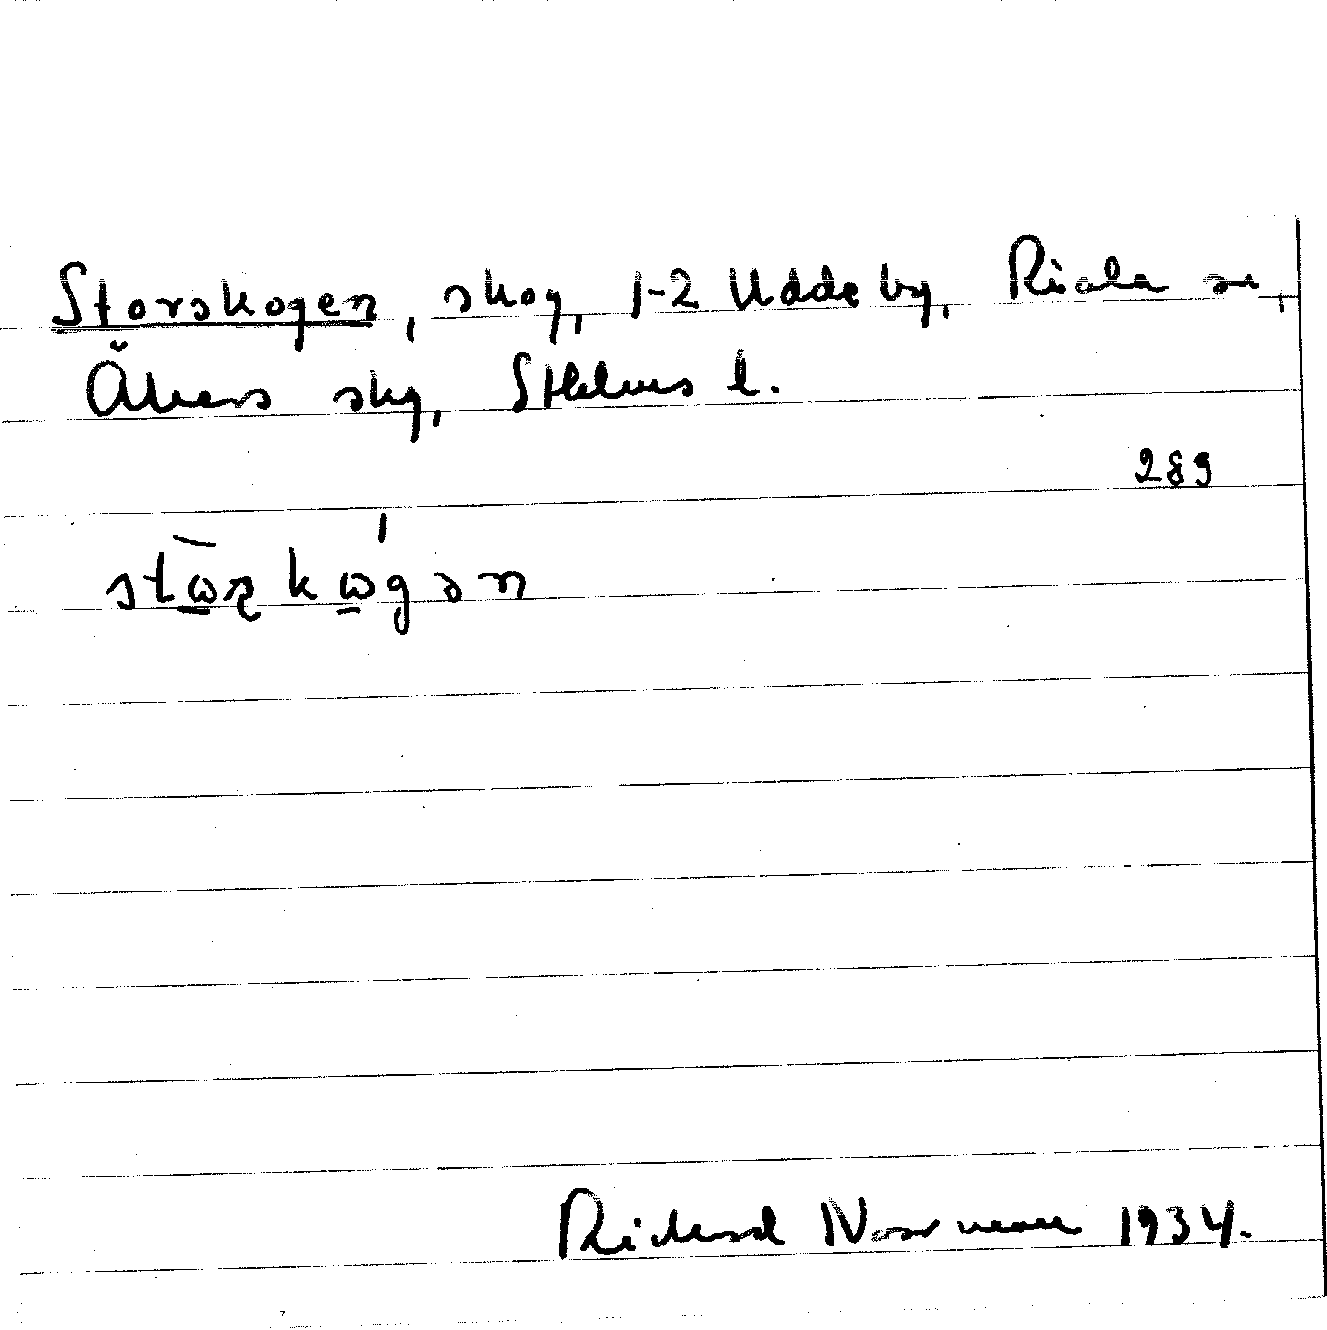 Storskogen, skog, 1-2 Uddeby, Riala sn,
Åkers skg, Sthlms l.
289
Rickard Norrman 1934.